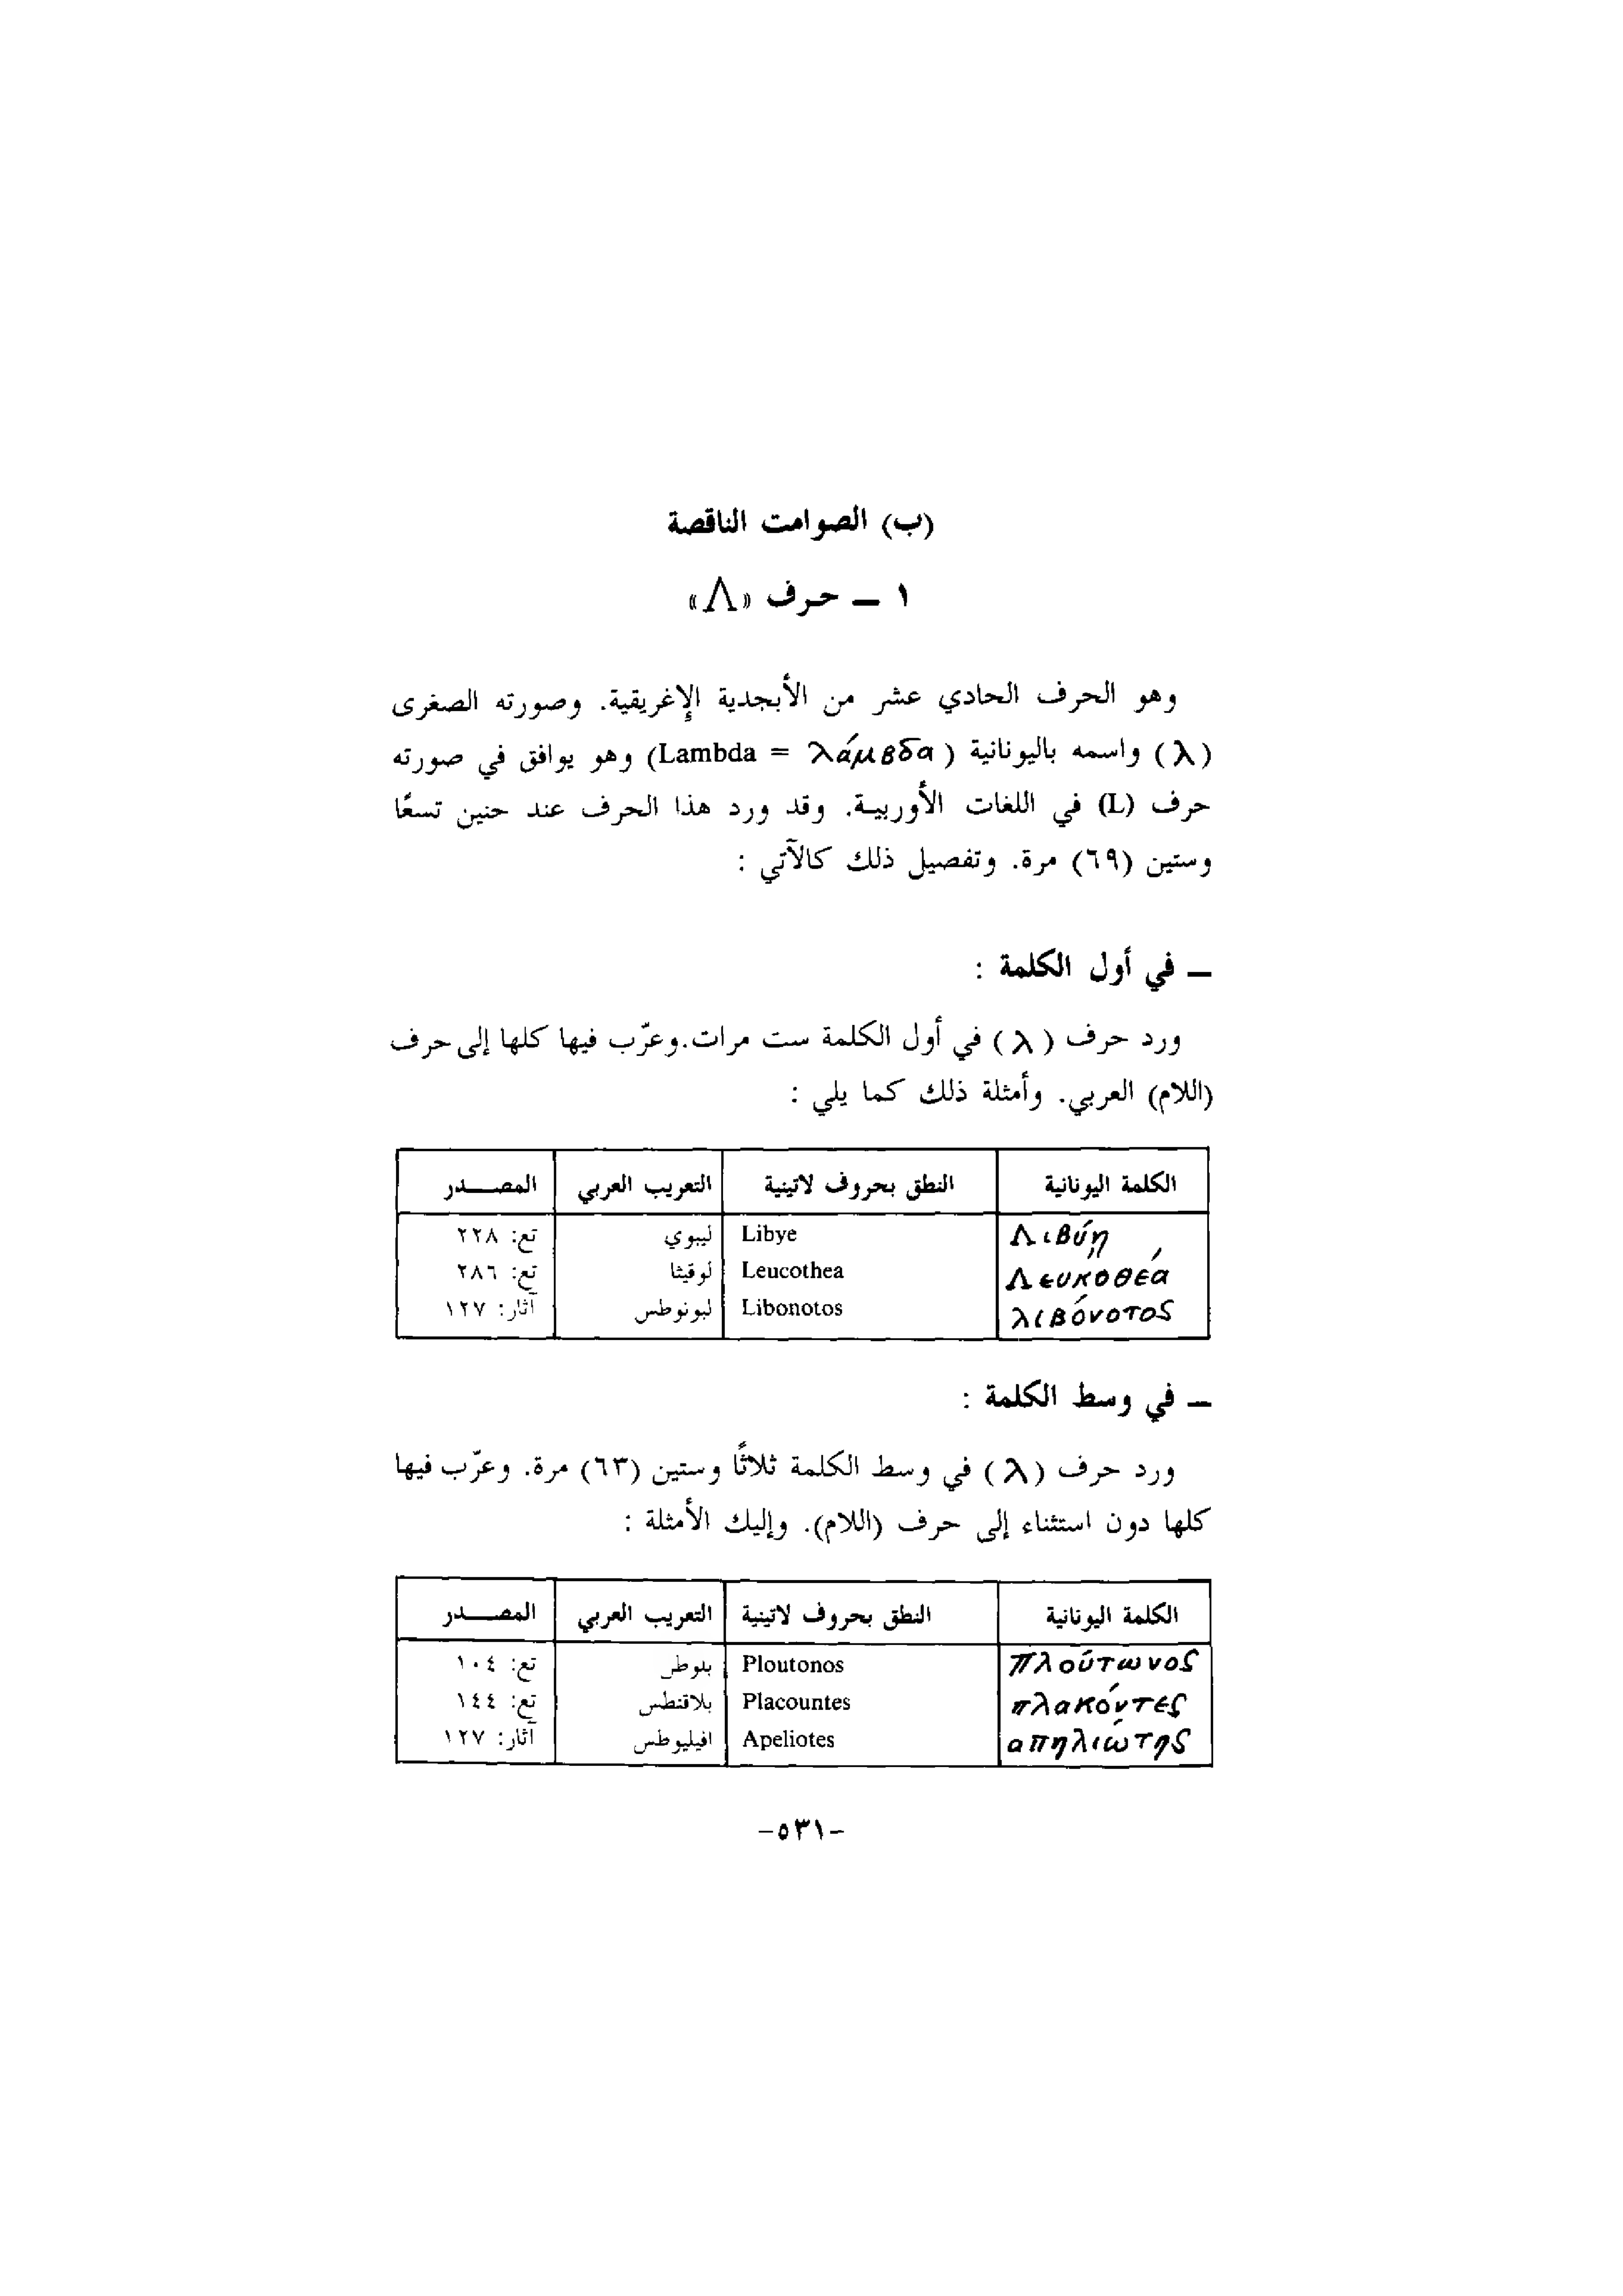 (ب) الصوامت الناقصة
١ — حرف «Λ»
وهو الحرف الحادي عشر من الأبجدية الإغريقية. وصورته الصغرى
(λ) واسمه باليونانية (Lambda = λάμβδα) وهو يوافق في صورته
حرف (L) في اللغات الأوربية. وقد ورد هذا الحرف عند حنين تسعًا
وستين (٦٩) مرة. وتفصيل ذلك كالآتي :
— في أول الكلمة :
ورد حرف (λ) في أول الكلمة ست مرات. وعرّب فيها كلها إلى حرف
(اللام) العربي. وأمثلة ذلك كما يلي :
الكلمة اليونانية النطق بحروف لاتينية التعريب العربي المصدر
Λιβύη Libye ليبوي تع: ٢٢٨
Λευκοθέα Leucothea لوقيثا تع: ٢٨٦
λιβόνοτος Libonotos لبونوطس آثار: ١٢٧
— في وسط الكلمة :
ورد حرف (λ) في وسط الكلمة ثلاثًا وستين (٦٣) مرة. وعرّب فيها
كلها دون استثناء إلى حرف (اللام). وإليك الأمثلة :
الكلمة اليونانية النطق بحروف لاتينية التعريب العربي المصدر
πλούτωνος Ploutonos تع: ١٠٤
πλακόντες Placountes بلاقنطس تع: ١٤٤
απηλιώτης Apeliotes افيليوطس آثار: ١٢٧
-٥٣١-